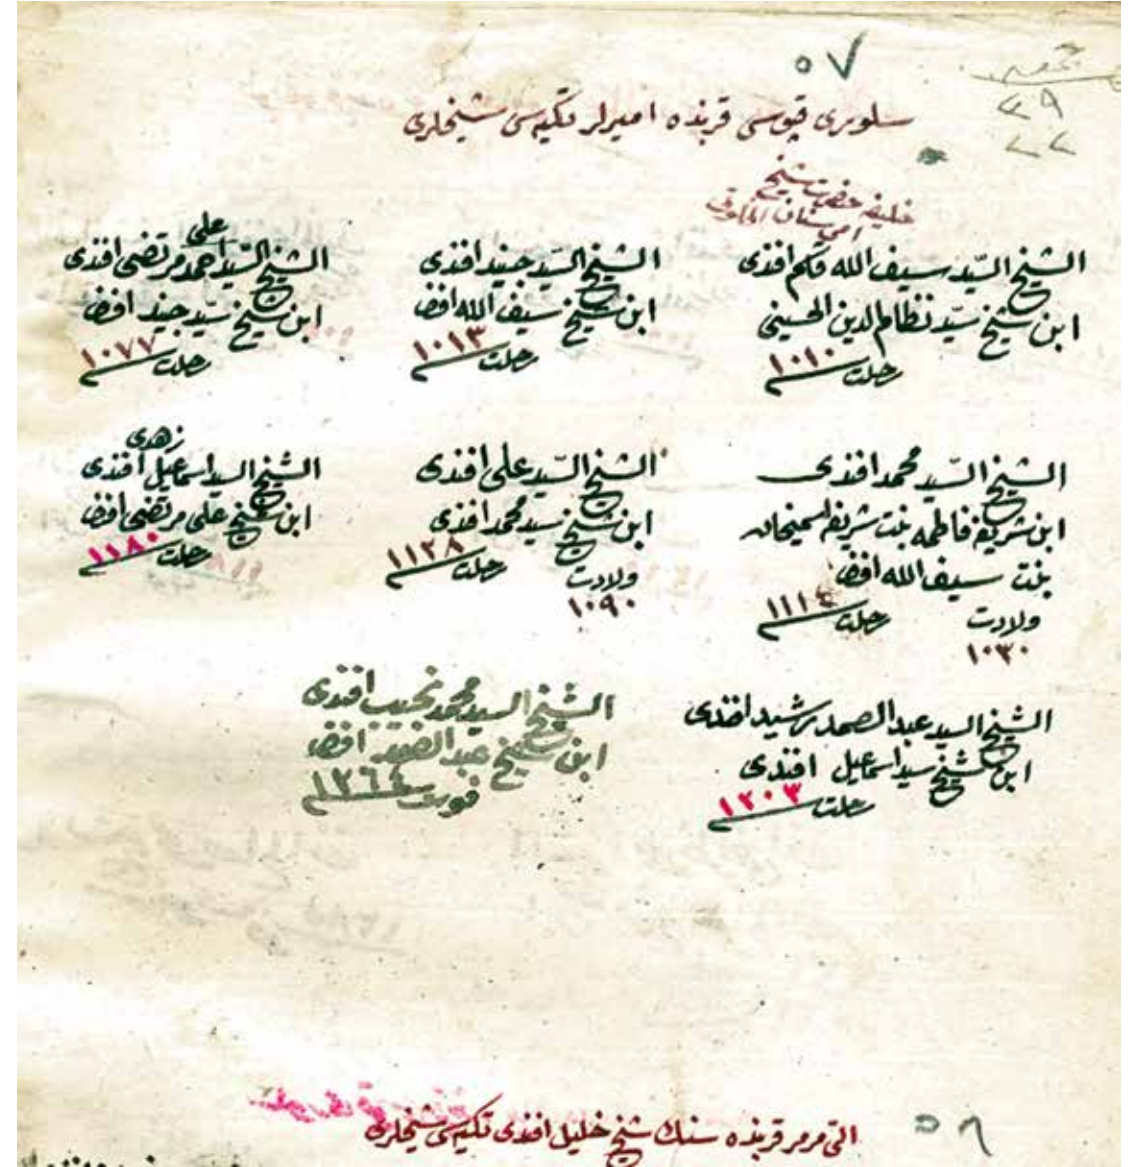 ٥٧
سلوری قپوسی قربنده امیرلر تکیه‌سی شیخلری
خلیفه حضرت شیخ
امی سنان الخلوتی
الشیخ السّید سیف الله قاسم افندی
ابن شیخ سیّد نظام الدین الحسینی
رحلت ١٠١٠
الشیخ السّید جنید افندی
ابن شیخ سیف الله افندی
رحلت ١٠١٣
علی
الشیخ السّید احمد مرتضی افندی
ابن شیخ سیّد جنید افندی
رحلت ١٠٧٧
الشیخ السّید محمد افندی
ابن شریفه فاطمه بنت شریفه
بنت سیف الله افندی
ولادت ١٠٣٠
رحلت ١١١٤
الشیخ السّید علی افندی
ابن شیخ سید محمد افندی
ولادت ١٠٩٠
رحلت ١١٣٨
زهدی
الشیخ السید اسماعیل افندی
ابن شیخ علی مرتضی افندی
رحلت ١١٨٠
الشیخ السید عبد الصمد رشید افندی
ابن شیخ سید اسماعیل افندی
رحلت ١٢٠٣
الشیخ السید محمد نجیب افندی
ابن شیخ عبد الصمد افندی
فوت ١٢٦٤
٥٨
التی مرمر قربنده سنبل شیخ خلیل افندی تکیه‌سی شیخلری